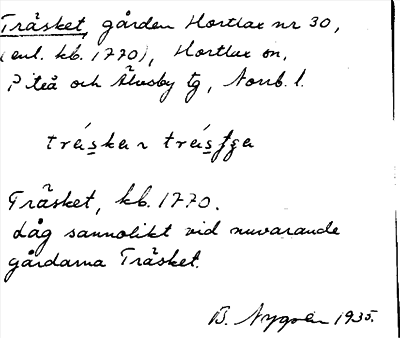 Träsket, gården Hortlax nr 30,
(enl. kb. 1770), Hortlax sn,
Piteå och Älvsby tg, Norrb. l.
Träsket, kb. 1770.
Låg sannolikt vid nuvarande
gårdarna Träsket.
B. Nygren 1935.